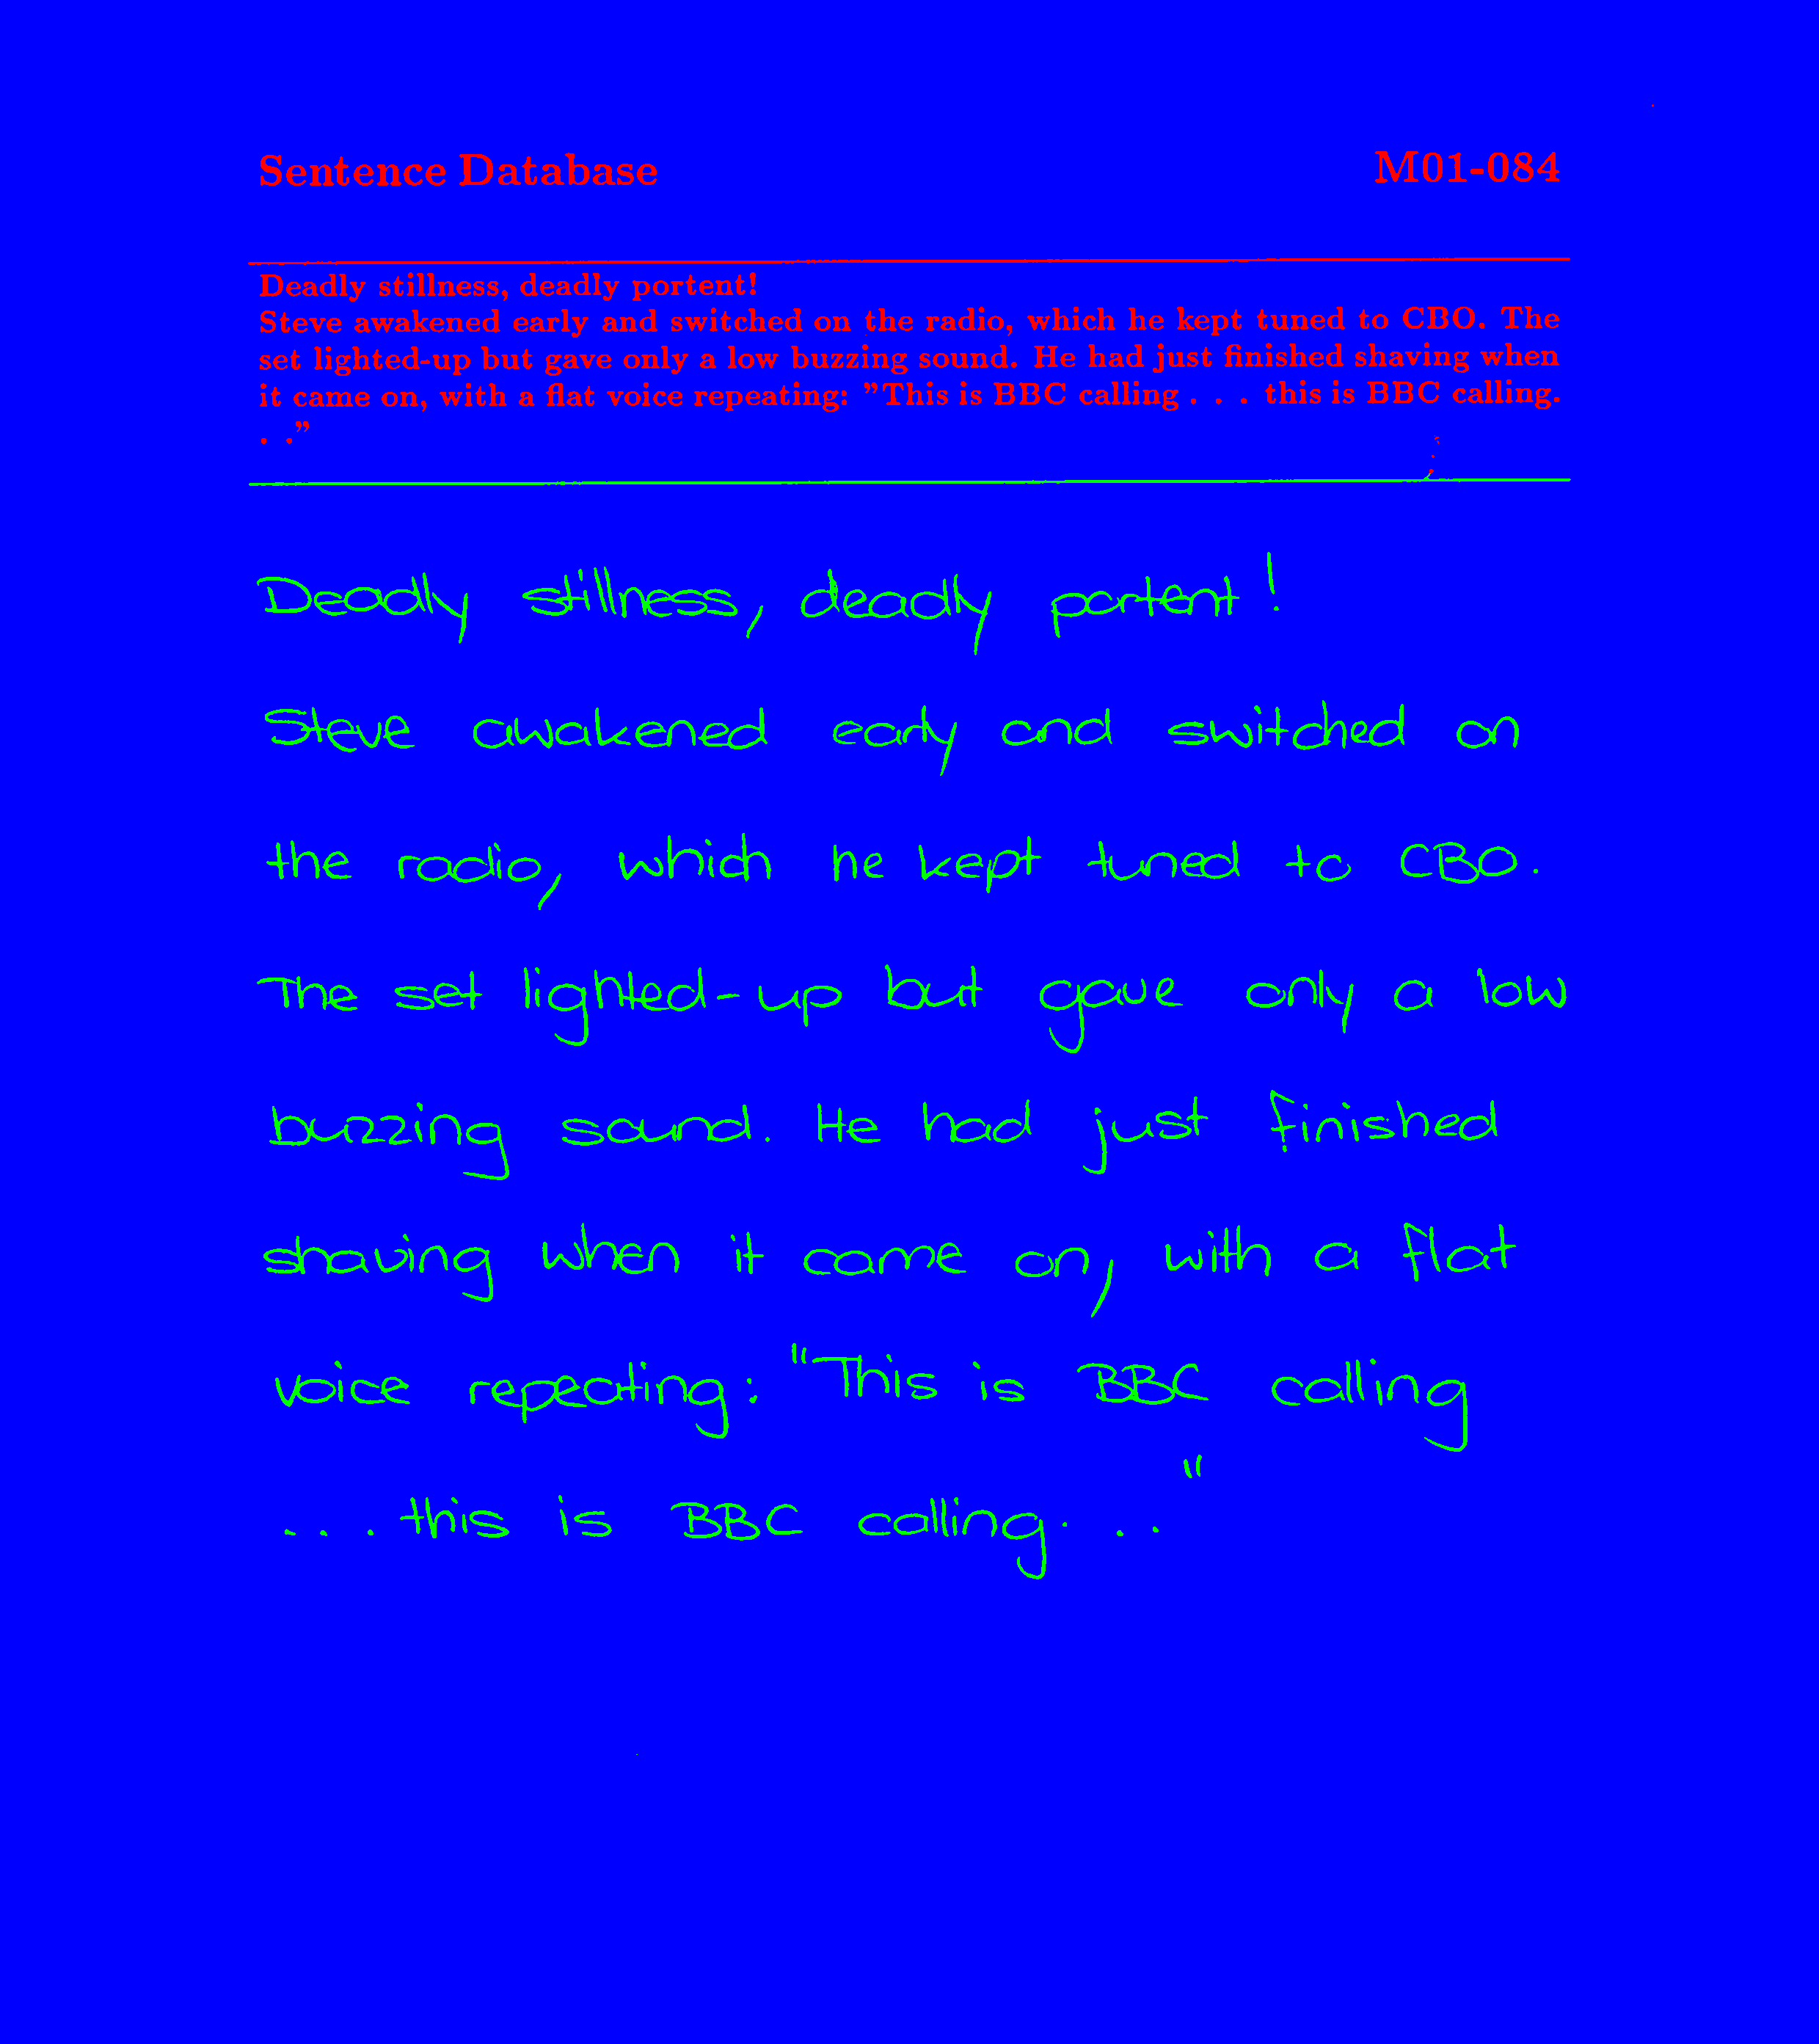 Sentence Database M01-084
Deadly stillness, deadly portent!
Steve awakened early and switched on the radio, which he kept tuned to CBO. The
set lighted-up but gave only a low buzzing sound. He had just finished shaving when
it came on, with a flat voice repeating: "This is BBC calling . . . this is BBC calling.
. ."
Deadly stillness, deadly portent!
Steve awakened early and switched on
the radio, which he kept tuned to CBO.
The set lighted-up but gave only a low
buzzing sound. He had just finished
shaving when it came on, with a flat
voice repeating: "This is BBC calling
... this is BBC calling. . ."